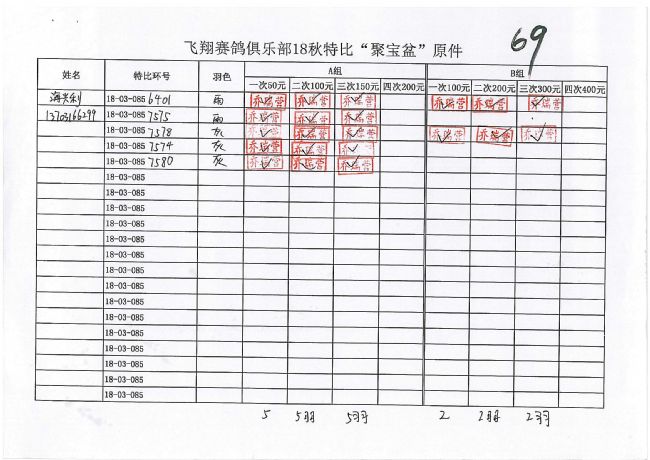 飞翔赛鸽俱乐部18秋特比“聚宝盆”原件 69
姓名 特比环号 羽色 A组 B组
一次50元 二次100元 三次150元 四次200元 一次100元 二次200元 三次300元 四次400元
海兴利 18-03-085 6401 雨 乔瑞营 乔瑞营 乔瑞营 乔瑞营 乔瑞营 乔瑞营
13703166299 18-03-085 7575 雨 乔瑞营 乔瑞营 乔瑞营
18-03-085 7578 灰 乔瑞营 乔瑞营 乔瑞营 乔瑞营 乔瑞营 乔瑞营
18-03-085 7574 灰 乔瑞营 乔瑞营 乔瑞营
18-03-085 7580 灰 乔瑞营 乔瑞营 乔瑞营
18-03-085
18-03-085
18-03-085
18-03-085
18-03-085
18-03-085
18-03-085
18-03-085
18-03-085
18-03-085
18-03-085
18-03-085
18-03-085
18-03-085
18-03-085
5 5 5 2 2 2